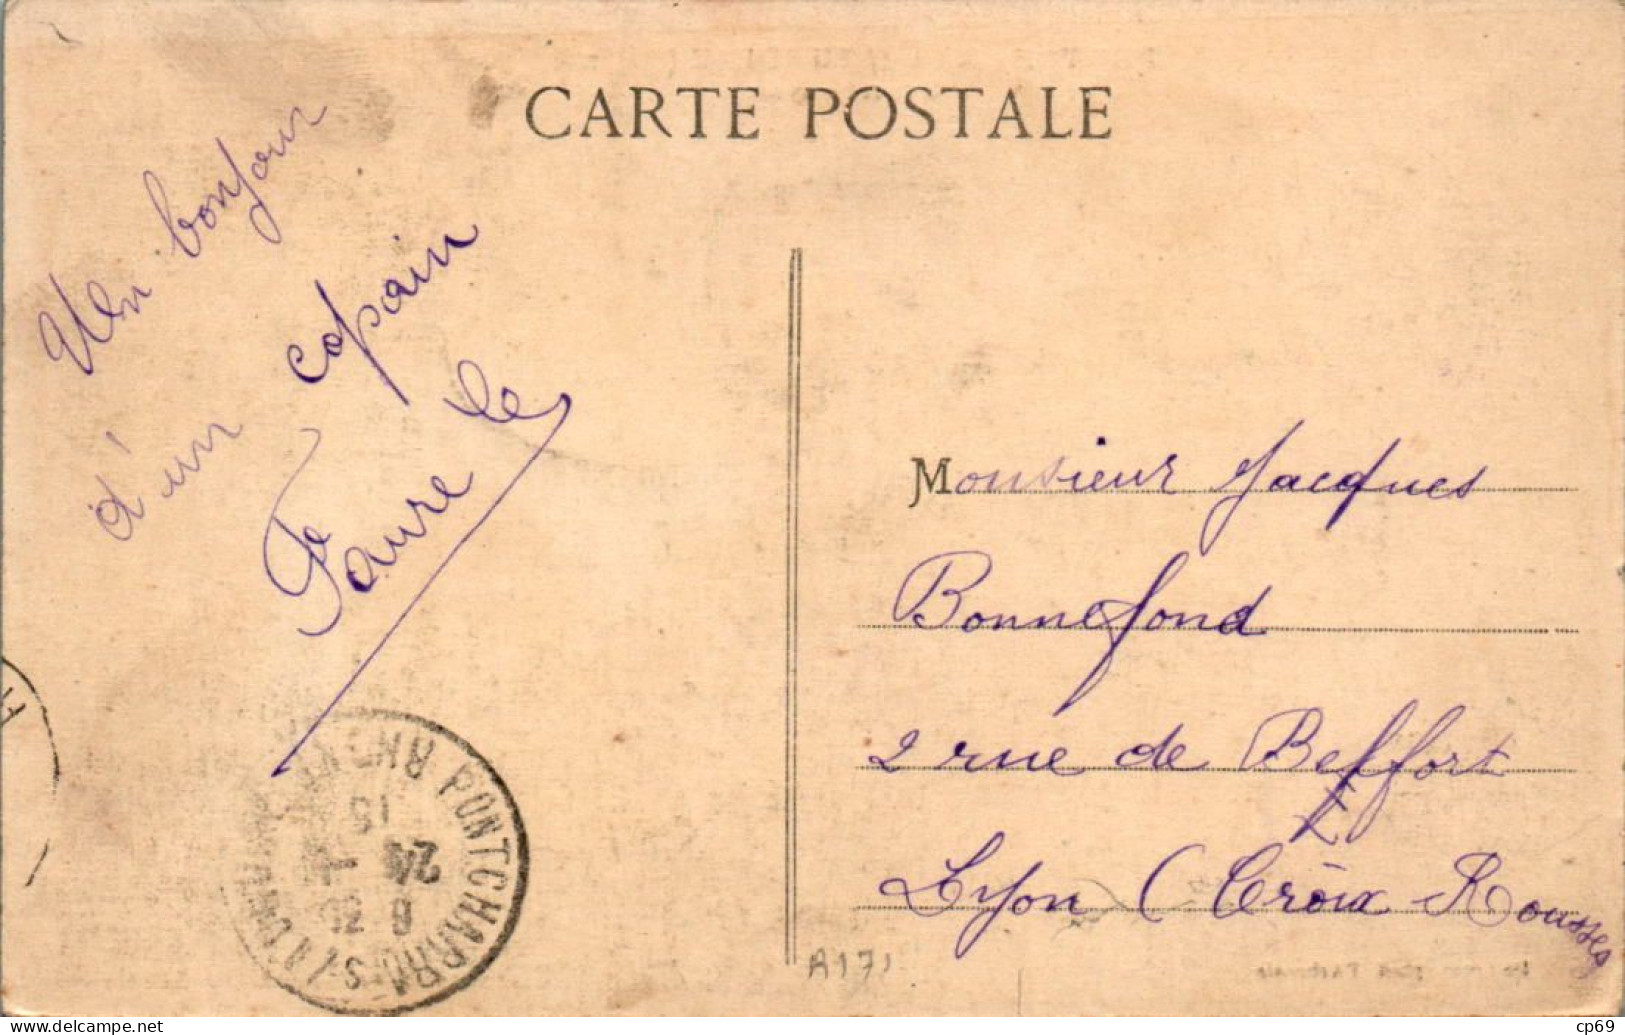 CARTE POSTALE
Un bonjour
d'un copain
Faure
Monsieur Jacques
Bonnefond
2 rue de Belffort
Lyon (Croix Rousses
PONTCHARRA-S/TURDINE RHÔNE
15
24
8
A171
delcampe.net
cp69